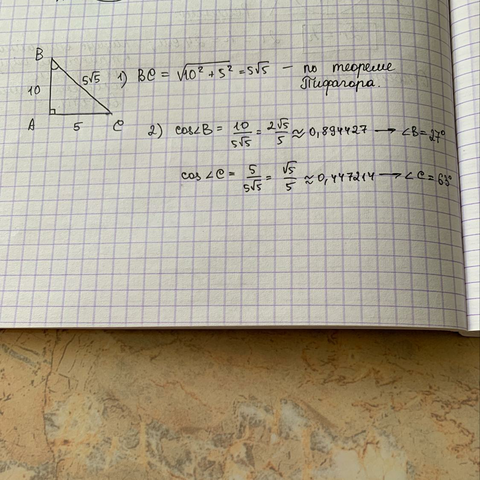 B
10
5√5
A
5
C
1) BC = √10² + 5² = 5√5 — по теореме
Пифагора.
2) cos∠B = 10/5√5 = 2√5/5 ≈ 0,894427 → ∠B = 27°
cos ∠C = 5/5√5 = √5/5 ≈ 0,447214 → ∠C = 63°